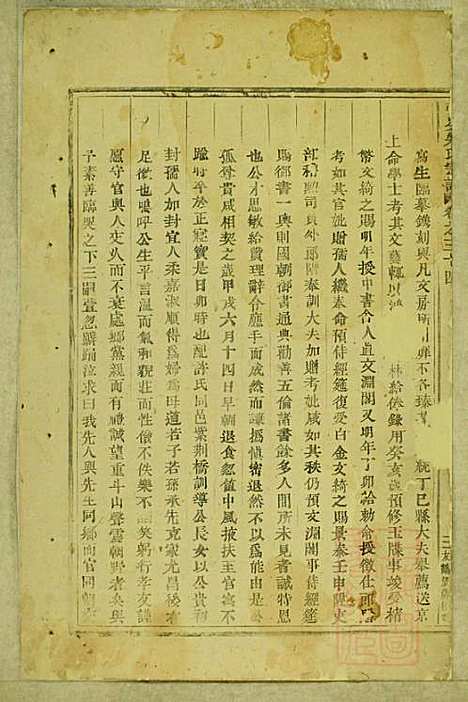 寫生臨摹鐫刻與凡文房所
統丁巳縣大夫舉薦送京
上命學士考其文藝輒以
林給俸錄用癸亥
預修玉牒事竣受楮
幣文綺之賜明年授中書舍人直文淵閣又明年丁卯給勅命授徵仕郎
考如其官妣贈孺人繼奉命預侍經筵復受白金文綺之賜景泰壬申陞吏
部稽勳司員外郎階奉訓大夫加贈考妣咸如其秩仍預文淵閣事侍經筵
賜御書一輿則國朝御書通典勸善五倫諸書餘多人間所未見者誠特恩
也公才思敏給贊理辭令應手而成然而謙撝慎密退然不以為能由
孤骨貴咸相契之歲甲戌六月十四日早朝退食忽值中風披扶主官寓不
踰時卒於正寢寔是日卯時也配許氏同邑紫荆橋訓導公長女以公貴初
封孺人加封宜人柔嘉淑順得為婦為母道若子若孫承先克家尤昌後者
足徵也嗚呼公生平言溫而氣和觀莊而性儉不佚樂不 笑躬行孝友謹
愿守官與人交久而不衰處鄉黨親而有禮誠望重斗山聲雷朝野者矣與
子素善臨哭之下三嗣 忽躃踊泣求曰我先人與先生同鄉而官同朝